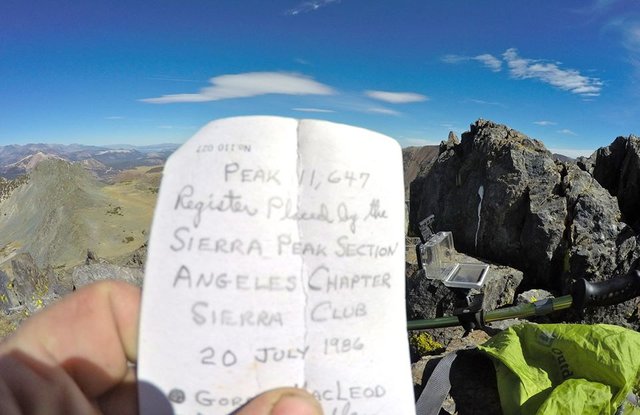 PEAK 11,647
Register Placed by the
SIERRA PEAK SECTION
ANGELES CHAPTER
SIERRA CLUB
20 JULY 1986
GORDON MACLEOD